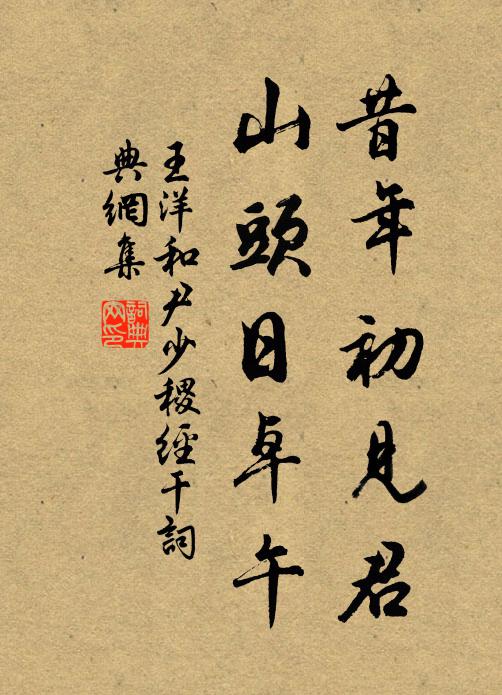 昔年初見君
山頭日卓午
王洋和尹少稷經干詞
典網集
詞典網印